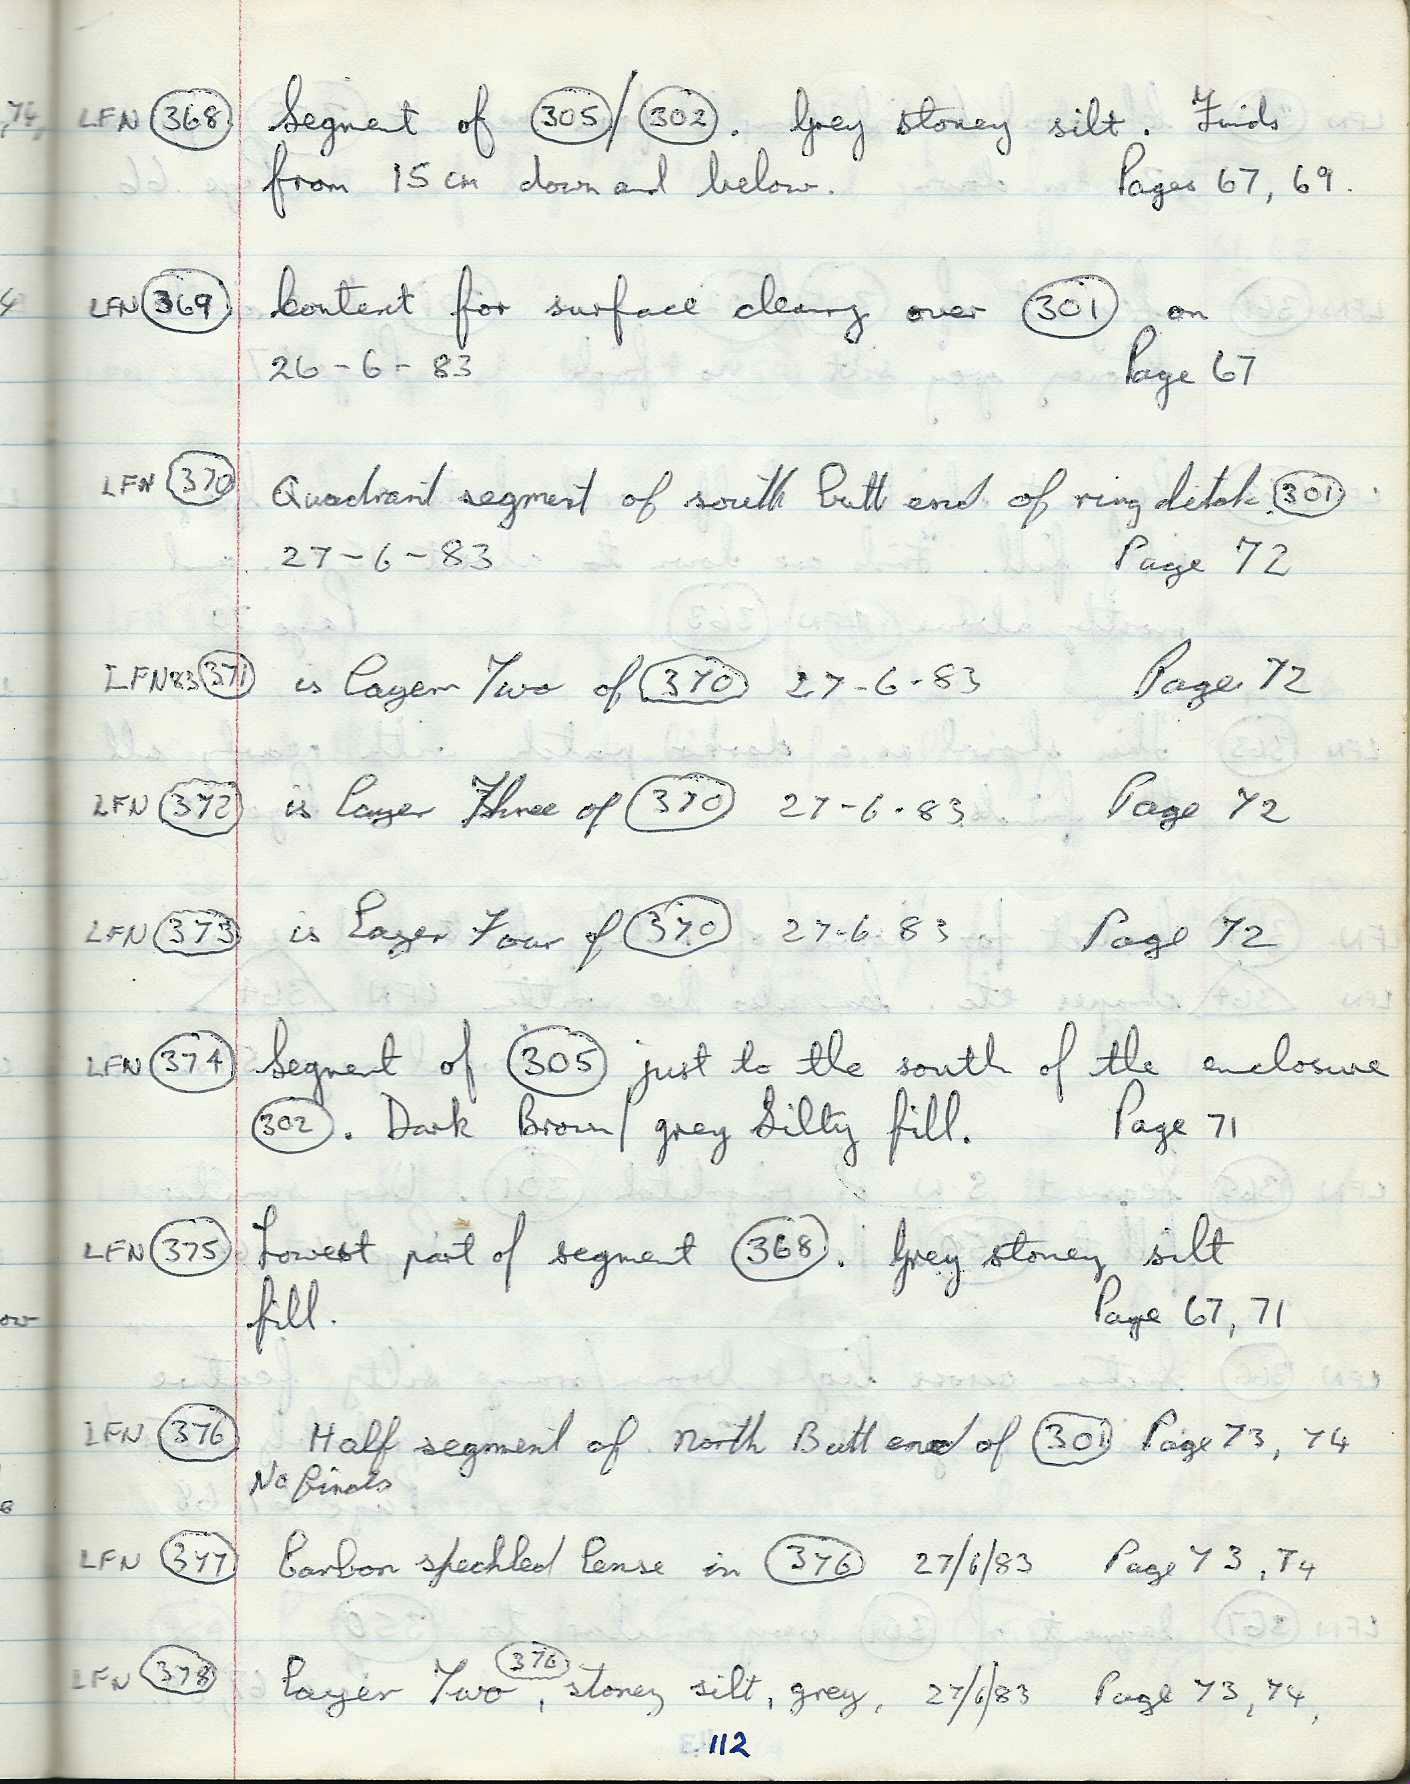 LFN 368 Segment of 305/302. Grey stoney silt. Finds
from 15cm down and below. Pages 67, 69.
LFN 369 Context for surface cleaning over 301 on
26-6-83 Page 67
LFN 370 Quadrant segment of south butt end of ring ditch 301
27-6-83 Page 72
LFN83 371 is layer Two of 370 27-6-83 Page 72
LFN 372 is layer Three of 370 27-6-83 Page 72
LFN 373 is layer Four of 370 27-6-83 Page 72
LFN 374 Segment of 305 just to the south of the enclosure
302. Dark Brown/grey Silty fill. Page 71
LFN 375 Lowest part of segment 368. Grey stoney silt
fill. Page 67, 71
LFN 376 Half segment of North Butt end of 301 Page 73, 74
No finds
LFN 377 Carbon speckled lense in 376 27/6/83 Page 73, 74
LFN 378 Layer Two 376, stoney silt, grey, 27/6/83 Page 73, 74,
112